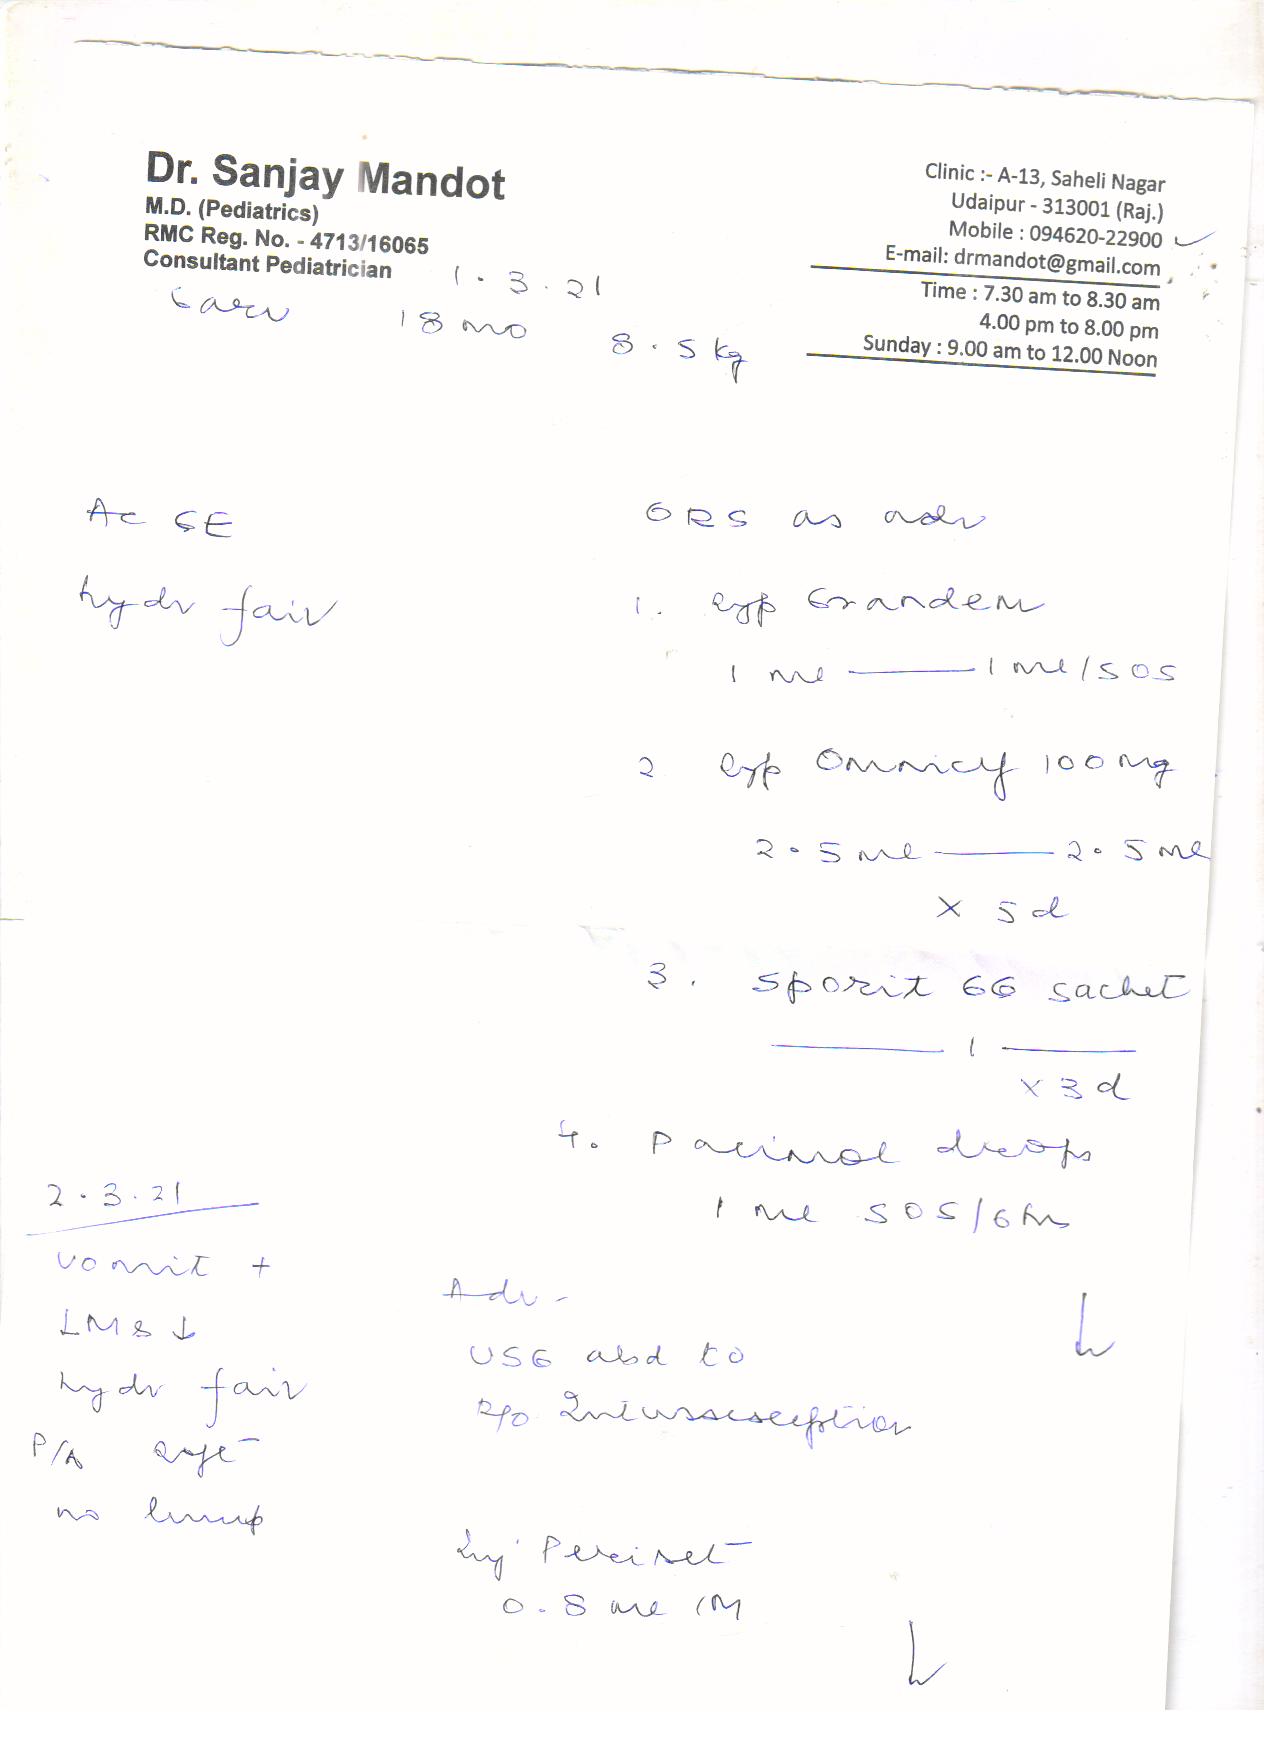 Dr. Sanjay Mandot
M.D. (Pediatrics)
RMC Reg. No. - 4713/16065
Consultant Pediatrician
Clinic :- A-13, Saheli Nagar
Udaipur - 313001 (Raj.)
Mobile : 094620-22900
E-mail: drmandot@gmail.com
Time : 7.30 am to 8.30 am
4.00 pm to 8.00 pm
Sunday : 9.00 am to 12.00 Noon
1.3.21
18 mo 8.5 kg
Ac GE
hydr fair
ORS as adv
1. Syp Grandem
1 ml — 1 ml/SOS
2 Syp Omnicef 100 mg
2.5 ml — 2.5 ml
x 5 d
3. Sporit GG sachet
— 1 —
x 3 d
4. Pacimol drops
1 ml SOS/6 hr
2.3.21
vomit +
LMS ↓
hydr fair
P/A soft
no lump
Adv -
USG abd to
R/O Intussusception
Inj Perinset
0.8 ml IM